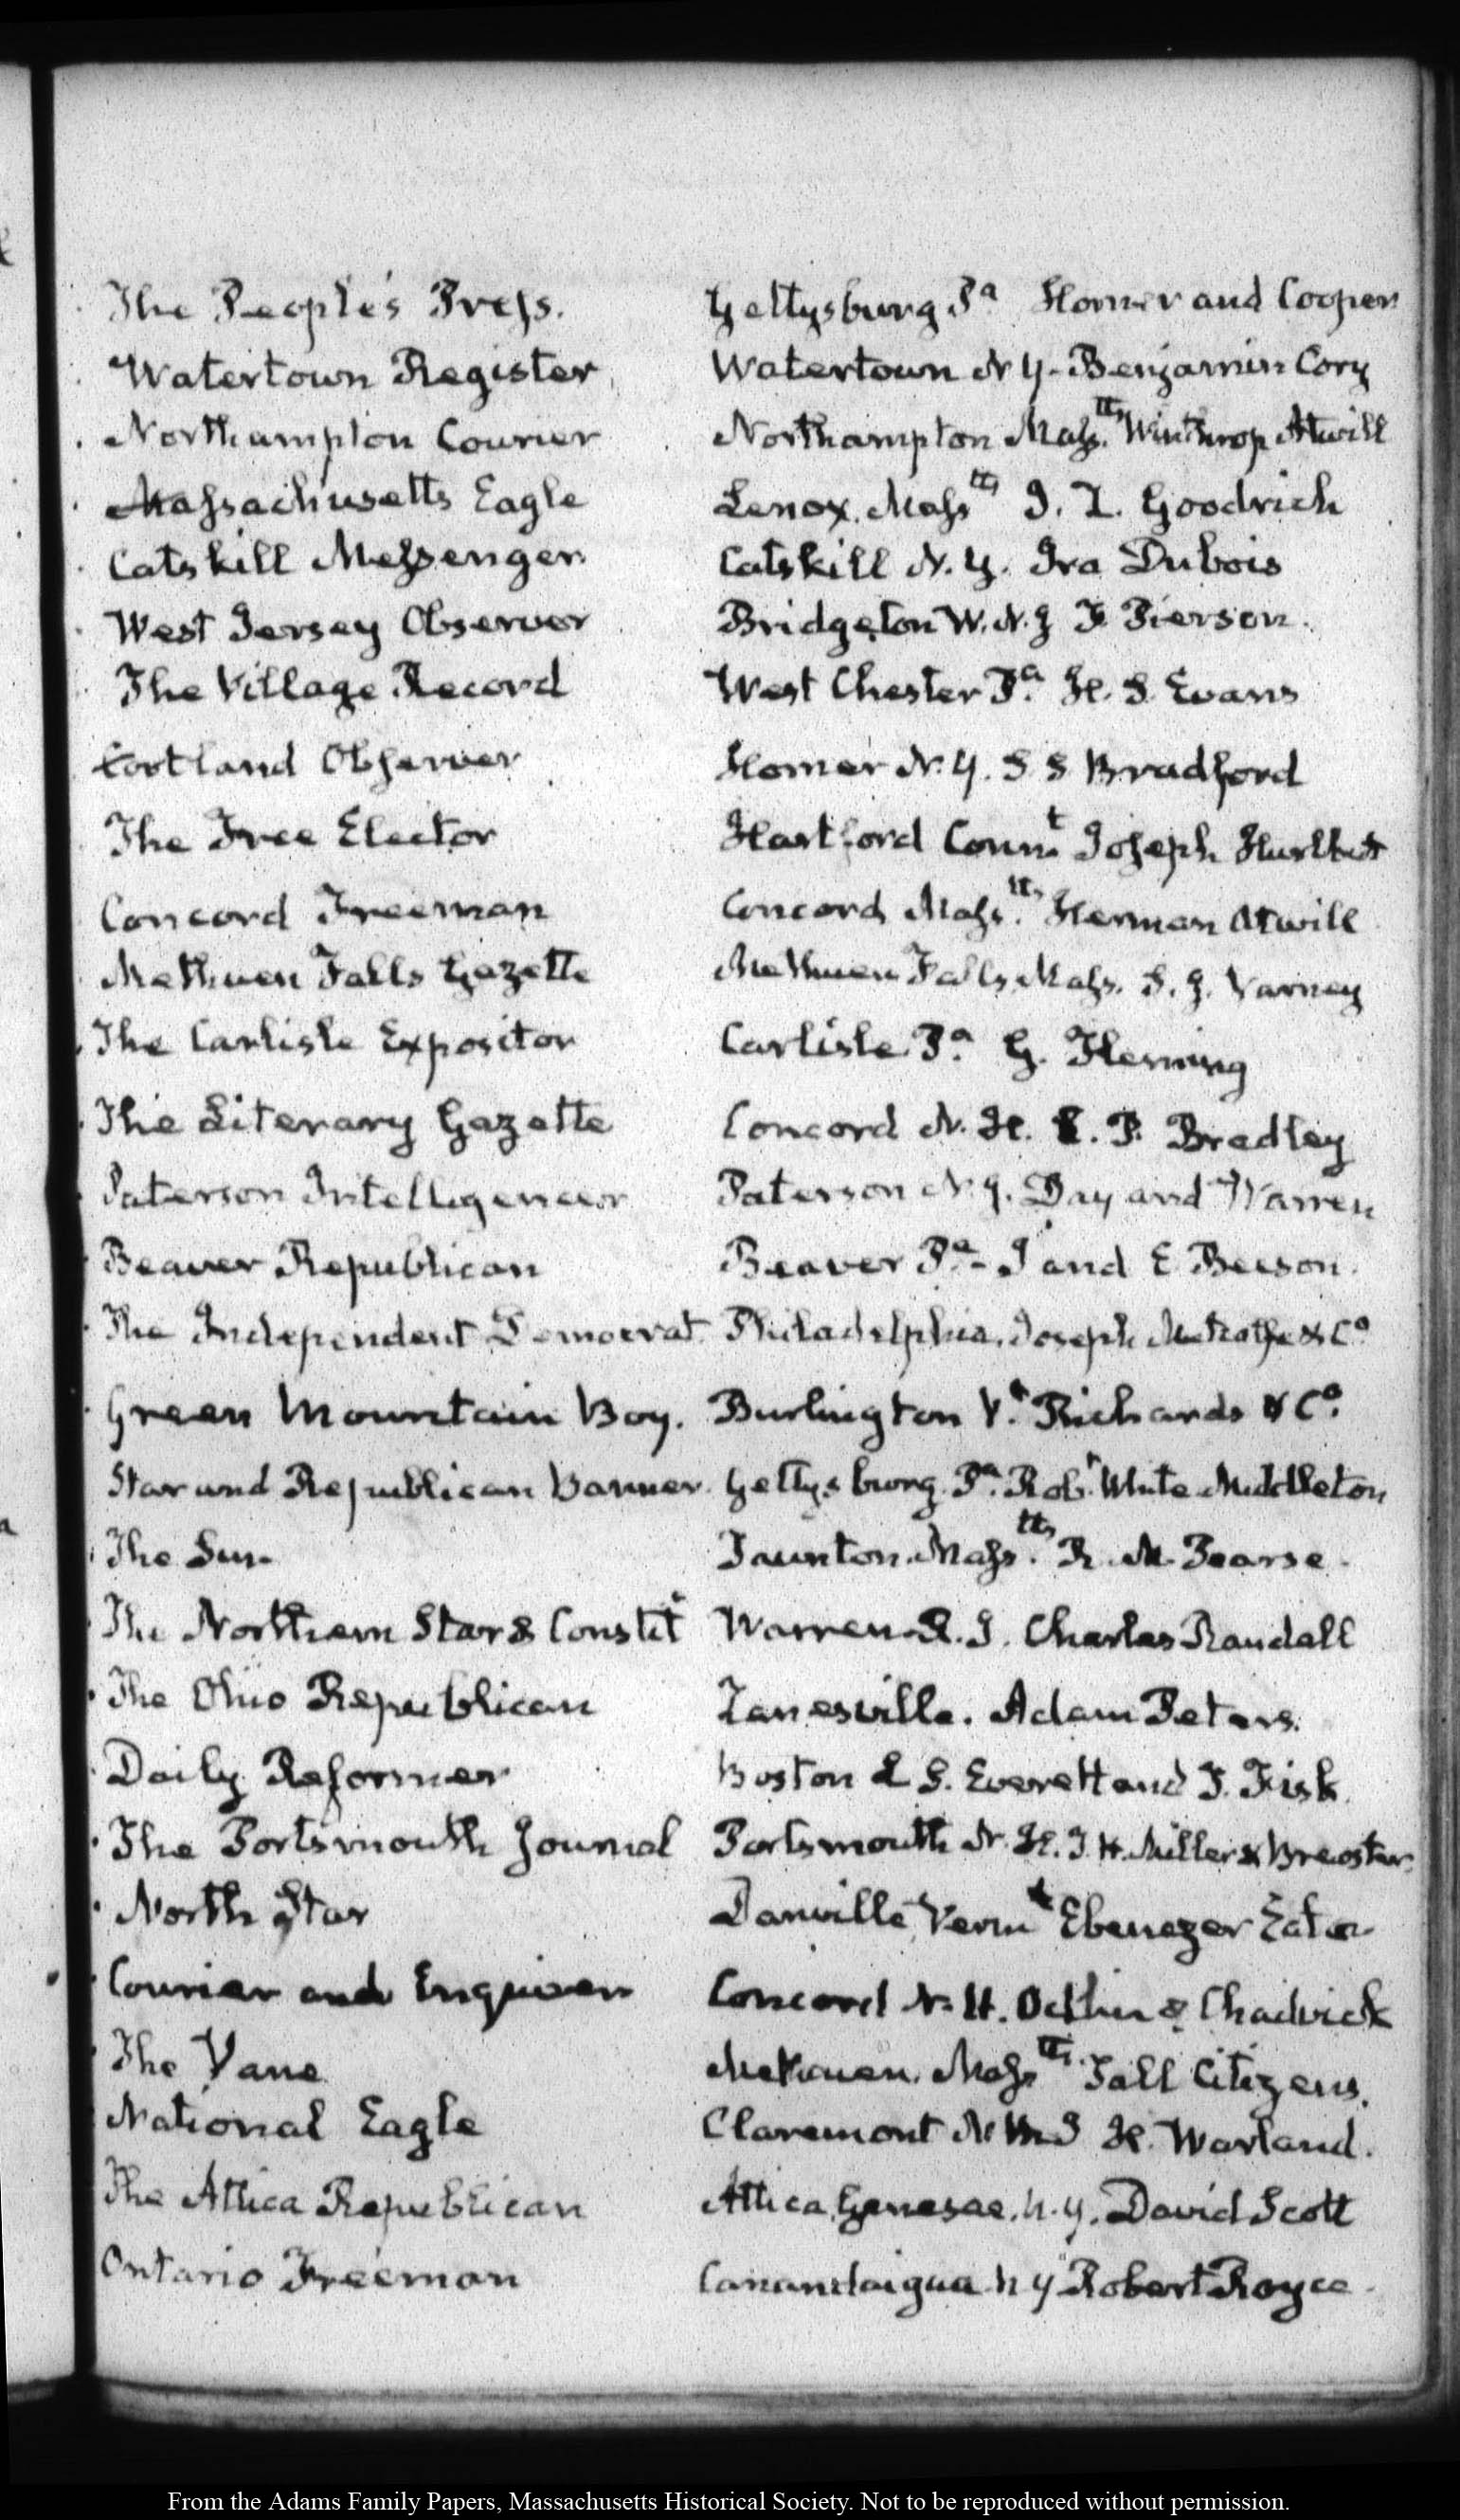 The People's Press. Gettysburg Pa Homer and Cooper
Watertown Register Watertown N Y - Benjamin Cory
Northampton Courier Northampton Mass.tts Winthrop Atwill
Massachusetts Eagle Lenox. Masstts J. Z. Goodrich
Catskill Messenger. Catskill N. Y. Ira Dubois
West Jersey Observer Bridgeton W. N. J F Pierson.
The Village Record West Chester Pa. H. S. Evans
Cortland Observer Homer N. Y. S S Bradford
The Free Elector Hartford Connt. Joseph Hurlbut
Concord Freeman Concord Mass.tts Herman Atwill
Methuen Falls Gazette Methuen Falls Mass. S. J. Varney
The Carlisle Expositor Carlisle Pa. G. Fleming
The Literary Gazette Concord N. H. P. Bradley
Paterson Intelligencer Paterson N. J. Day and Warren
Beaver Republican Beaver Pa. - J and E Beeson.
The Independent Democrat. Philadelphia. Joseph & Co
Green Mountain Boy. Burlington Vt. Richards & Co.
Star and Republican Banner. Gettysburg. Pa. Robt. White Middleton
The Sun. Taunton. Mass.tts R. M. Pearse.
The Northern Star & Constitt Warren R. I. Charles Randall
The Ohio Republican Zanesville. Adam Peters.
Daily Reformer Boston L S. Everett and T. Fisk.
The Portsmouth Journal Portsmouth N. H. T. H. Miller & Brewster.
North Star Danville Vermt Ebenezer Eaton
Courier and Enquirer Concord N. H. & Chadwick
The Vane Methuen. Masstts. Fall Citizens.
National Eagle Claremont N H. Warland.
The Attica Republican Attica, Genesee. N. Y. David Scott
Ontario Freeman Canandaigua N Y Robert Royce.
From the Adams Family Papers, Massachusetts Historical Society. Not to be reproduced without permission.